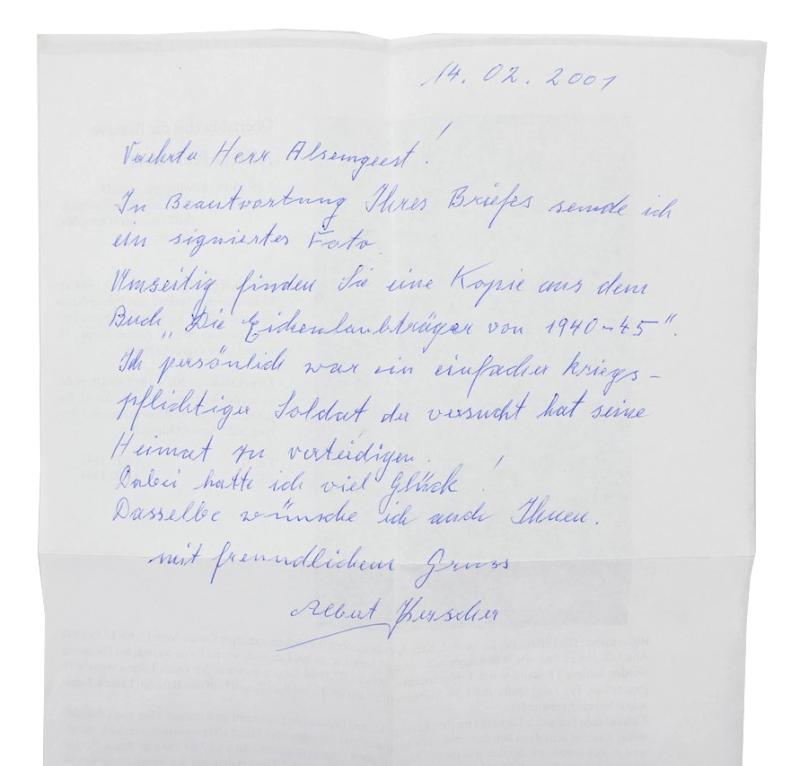 14. 02. 2001
Verehrter Herr Alsemgeest!
In Beantwortung Ihres Briefes sende ich
ein signiertes Foto.
Umseitig finden Sie eine Kopie aus dem
Buch „Die Eichenlaubträger von 1940-45".
Ich persönlich war ein einfacher kriegs-
pflichtiger Soldat der versucht hat seine
Heimat zu verteidigen.
Dabei hatte ich viel Glück!
Dasselbe wünsche ich auch Ihnen.
mit freundlichem Gruss
Albert Kerscher